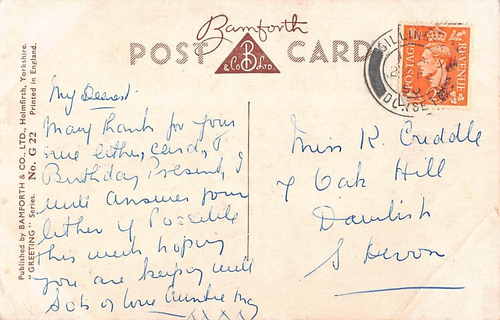 Bamforth
POST CARD
B
& Co LTD.
Published by BAMFORTH & CO., LTD., Holmfirth, Yorkshire.
"GREETING" Series. No. G 22 Printed in England.
GILLINGHAM
DORSET
POSTAGE REVENUE
My Dearest.
Many thanks for your
letter, card, &
Birthday Present, I
will answer your
letter if Possible
this week hoping
you are keeping well
Lots of love Auntie May
XXXX
Miss K. Criddle
7 Oak Hill
Dawlish
S Devon